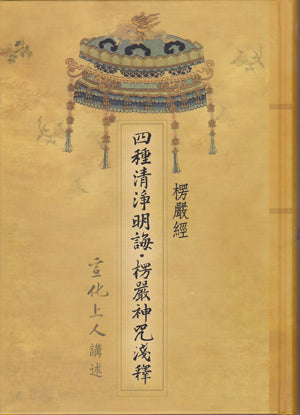 楞嚴經
四種清淨明誨‧楞嚴神咒淺釋
宣化上人講述